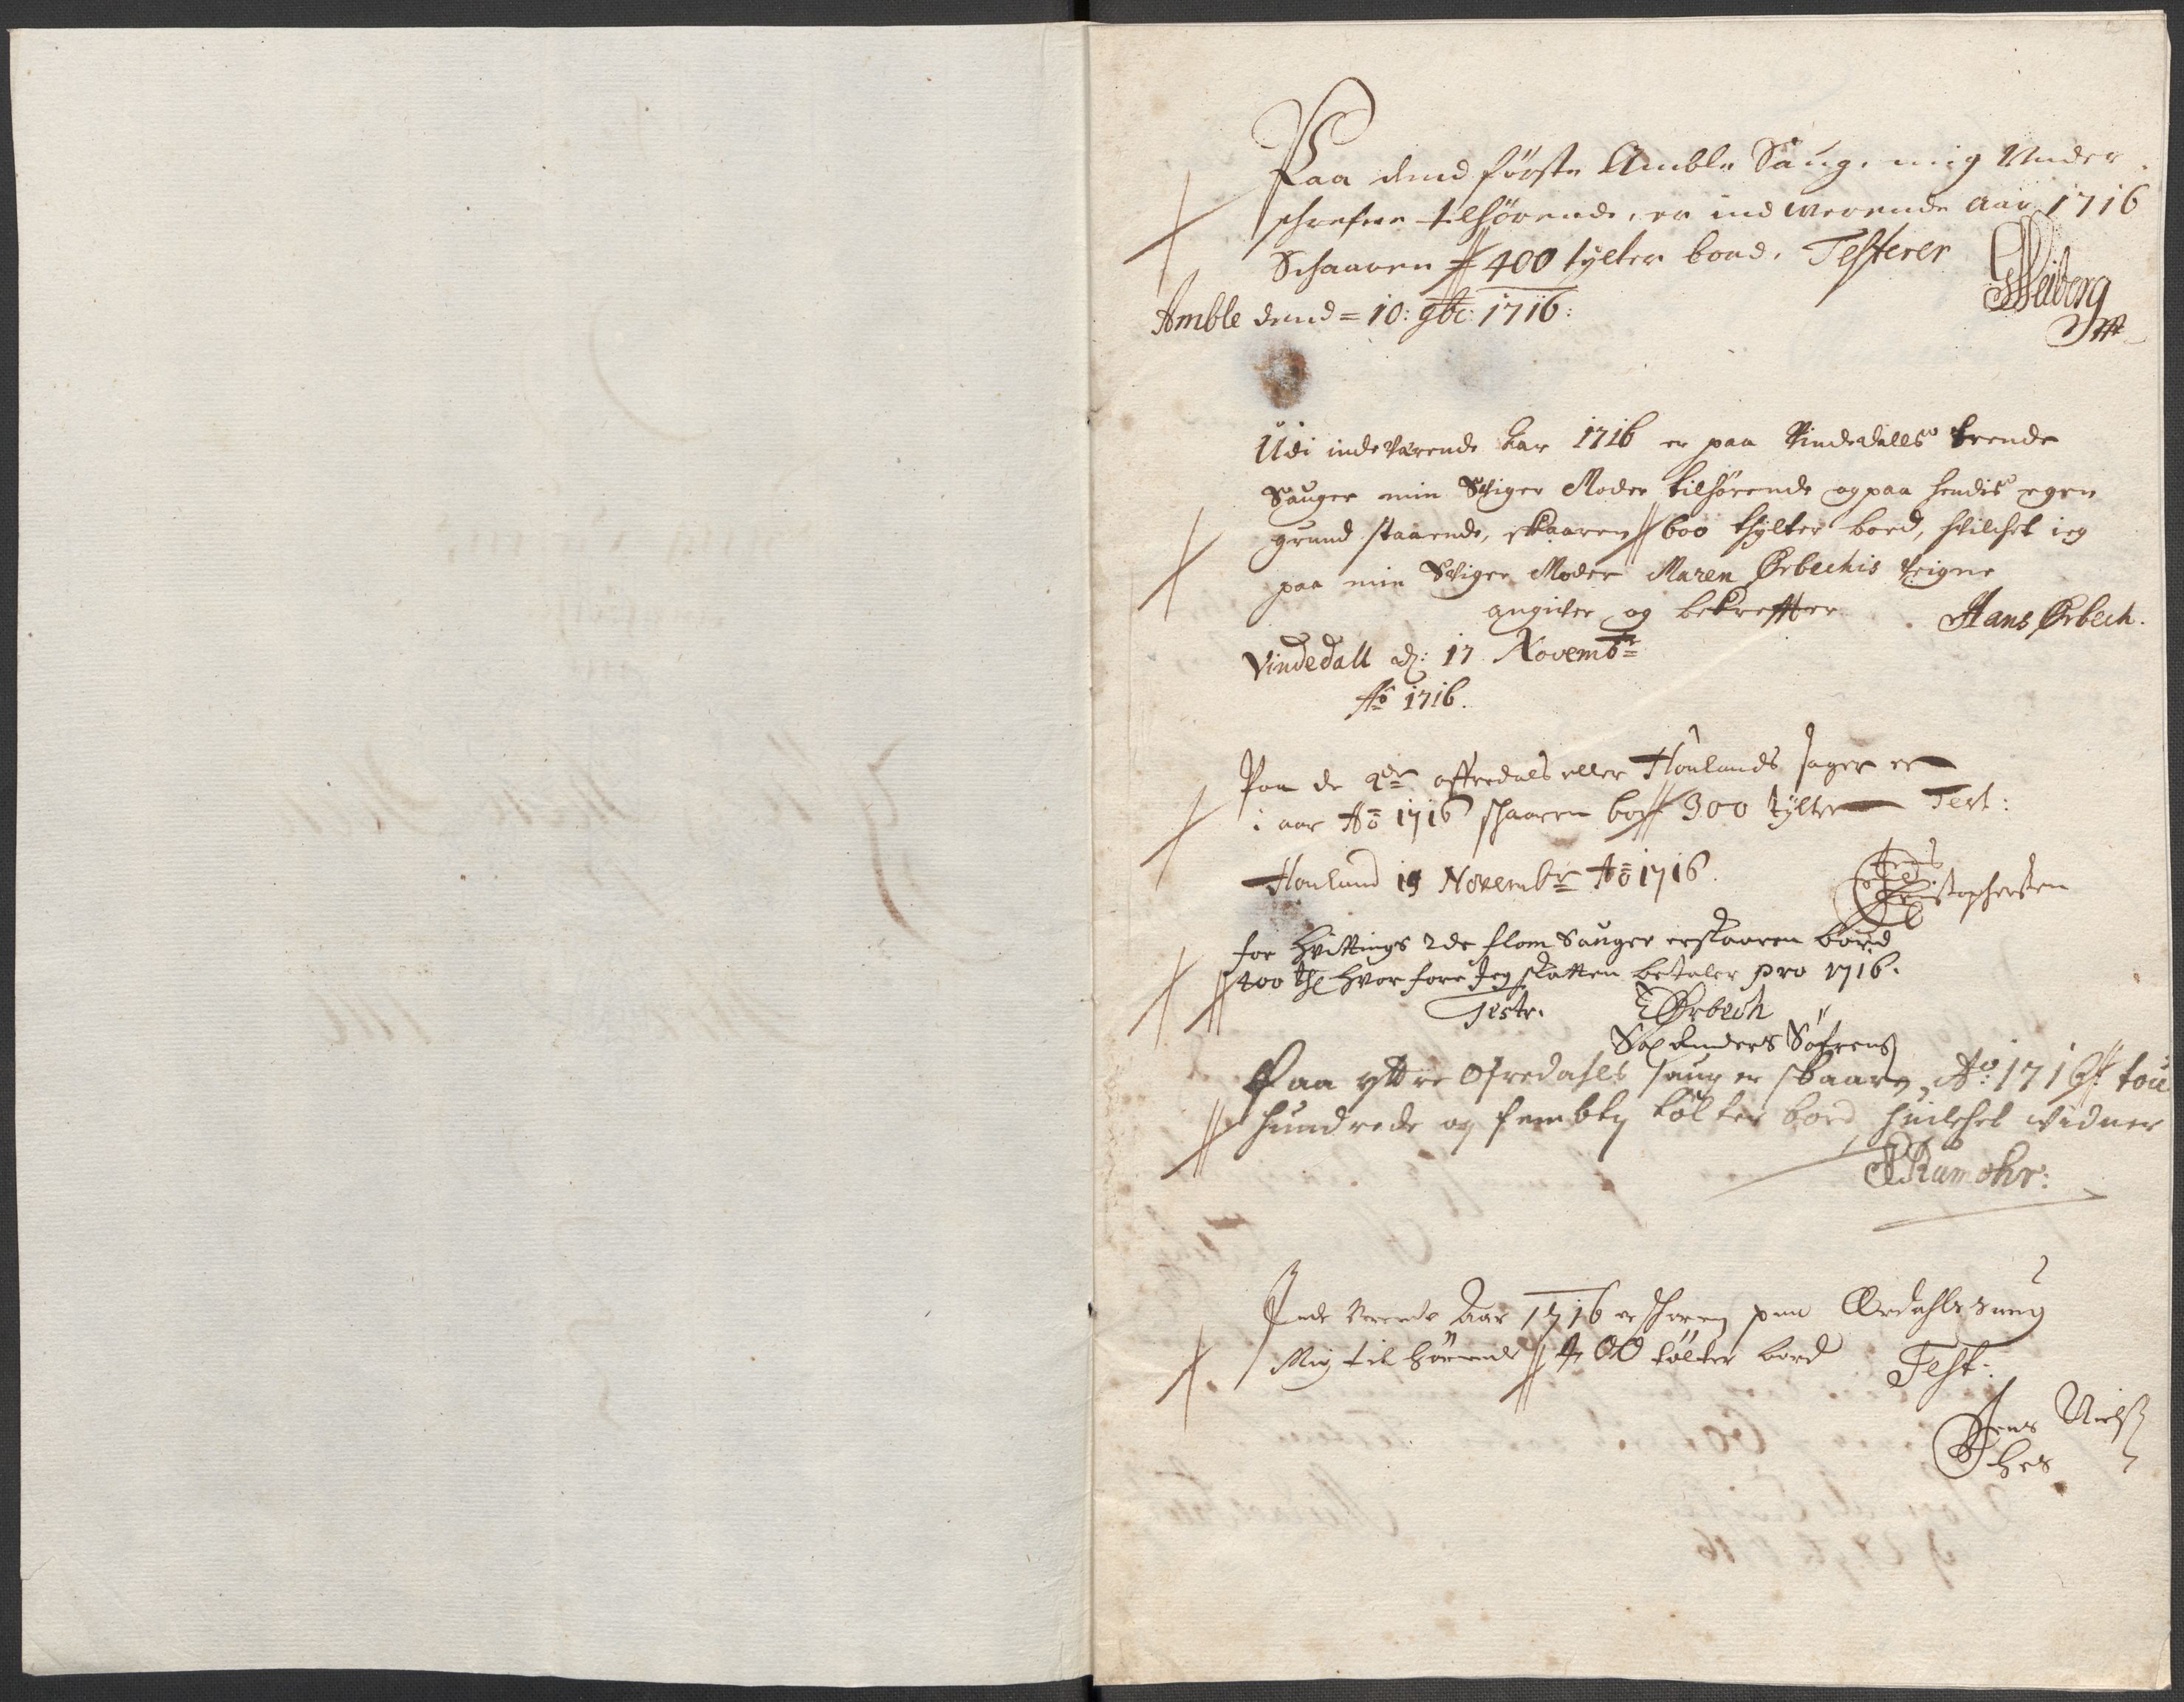 Paa dend første Amble Saug, mig Under
schrefne tilhørende, er ind werende aar 1716
Schaaren 400 tylter bord. Testerer
GHeiberg
Amble dend = 10: 9br: 1716:
Udi indeværende Aar 1716 er paa Vindedalls trende
Sauger min Sviger Moder tilhørende og paa hendis egen
grund staaende, skaaren 600 tylter bord, hvilchet ieg
paa min Sviger Moder Maren Ørbechis veigne
angiver og bekreffter Hans Ørbech.
Vindedall d: 17 Novembr
Ao 1716.
Paa de 2de offredals eller Houlands sager er
i aar Ao 1716 skaaren bord 300 tylter Test:
Houland 19 Novembr Ao 1716.
Christophersen
for Hvittings 2de flom Sauger erskaaren bord
400 tylt hvor fore Jeg skatten betaler pro 1716.
Testr. EØrbech
Sal Anders Søfrens
Paa yttre Ofredahls saug er skaaren Ao: 1716 tou
hundrede og fembty tølter bord huilchet vidner
Rumohr:
Inde verende Aar 1716 er skoren paa Ordahls saug
Mig til hørende 400 tølter bord Test:
Jens Niels